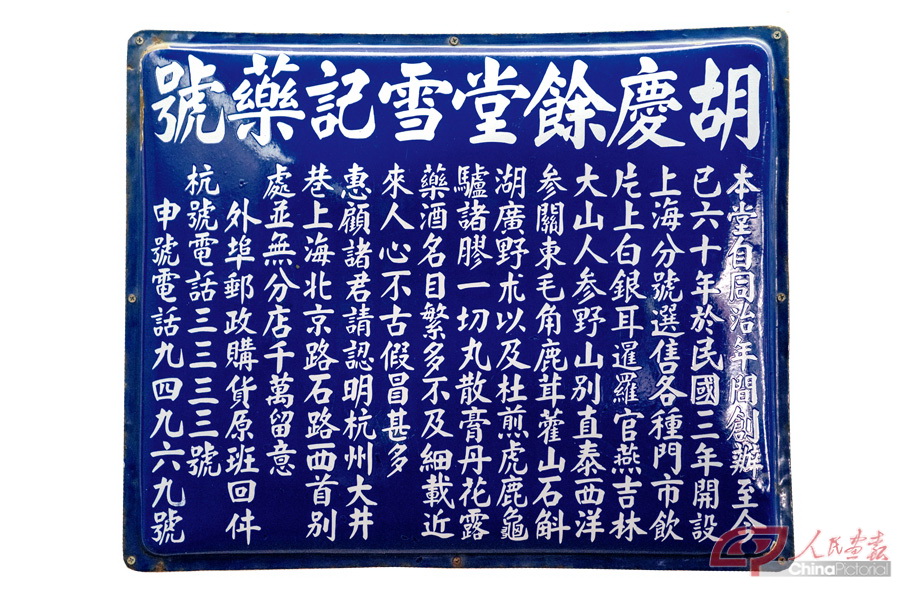 胡慶餘堂雪記藥號
本堂自同治年間創辦至今
已六十年於民國三年開設
上海分號選售各種門市飲
片上白銀耳暹羅官燕吉林
大山人参野山别直泰西洋
参關東毛角鹿茸藿山石斛
湖廣野朮以及杜煎虎鹿龜
驢諸膠一切丸散膏丹花露
藥酒名目繁多不及細載近
來人心不古假冒甚多
惠顧諸君請認明杭州大井
巷上海北京路石路西首别
處並無分店千萬留意
外埠郵政購貨原班回件
杭號電話三三三三號
申號電話九四九六九號
人民画报
ChinaPictorial